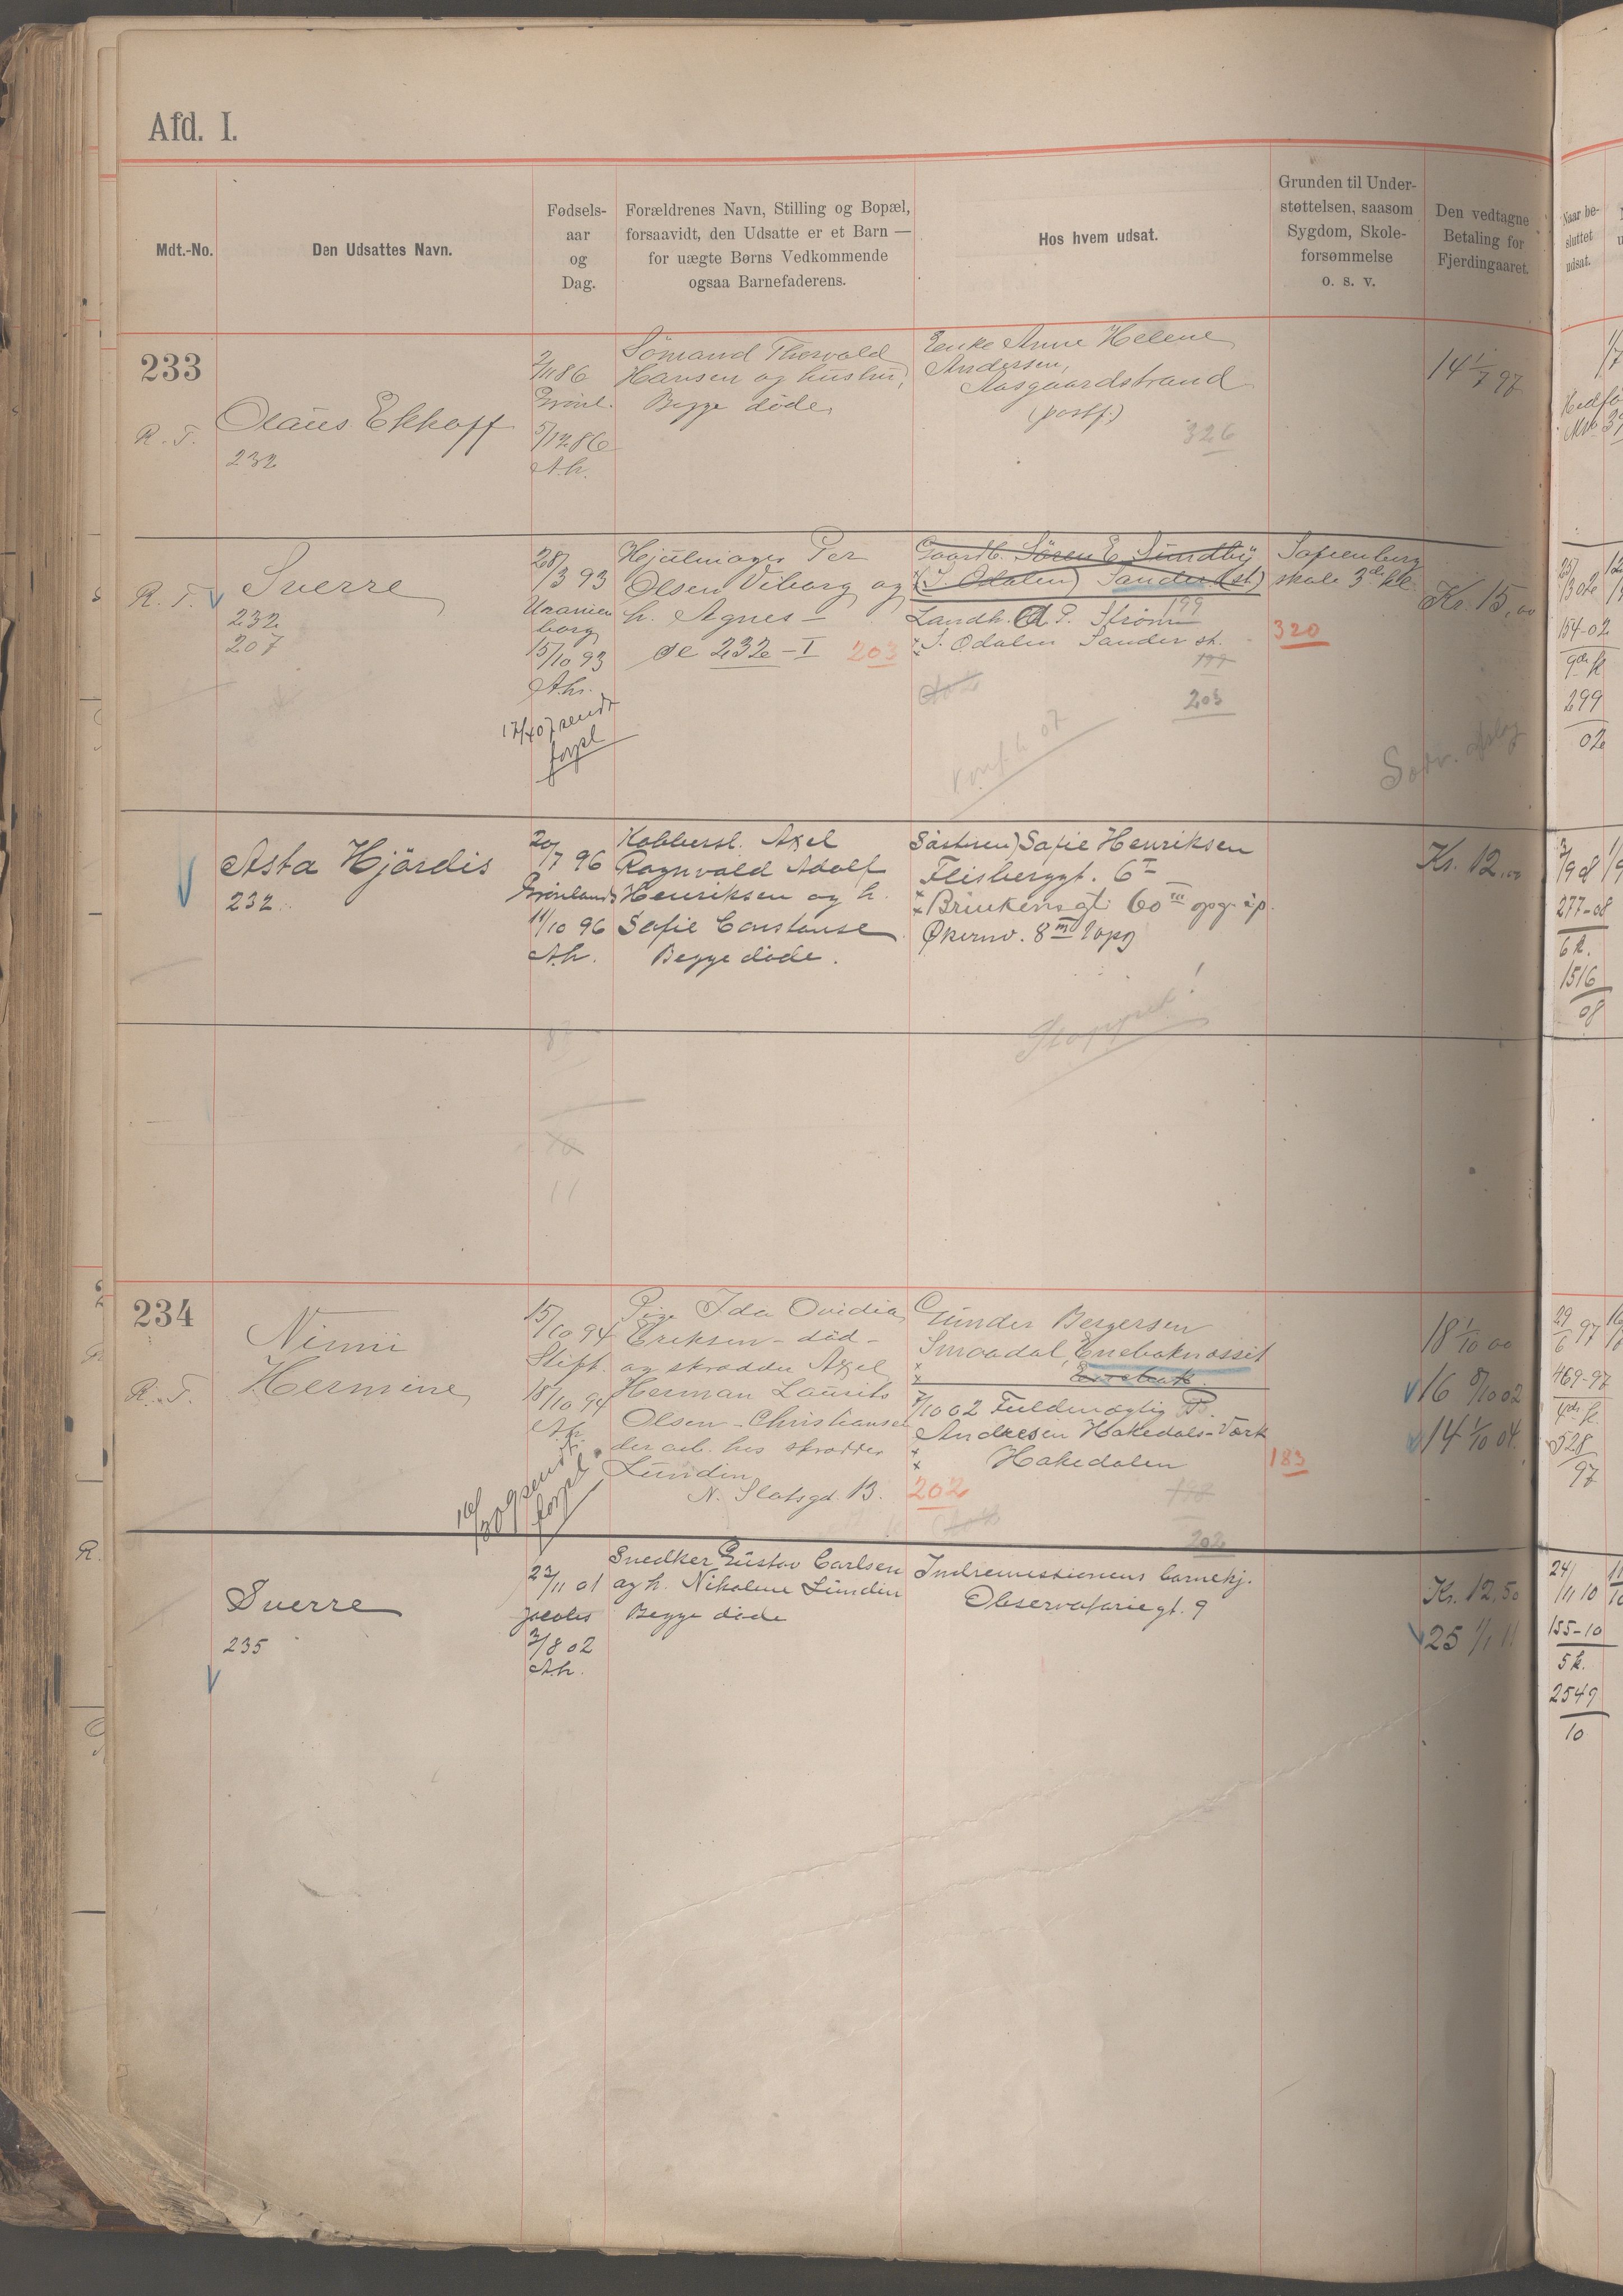 Afd. I.
Mdt.-No.
Den Udsattes Navn.
Fødsels-
aar
og
Dag.
Forældrenes Navn, Stilling og Bopæl,
forsaavidt, den Udsatte er et Barn —
for uægte Børns Vedkommende
ogsaa Barnefaderens.
Hos hvem udsat.
Grunden til Under-
støttelsen, saasom
Sygdom, Skole-
forsømmelse
o. s. v.
Den vedtagne
Betaling for
Fjerdingaaret.
Naar be-
sluttet
udsat.
233
R. T.
Olaus Ekhoff
232
2/11 86
Grönl.
5/12 86
A.k.
Sömand Thorvald
Hansen og hustru,
Begge döde,
Enke Anne Helene
Andersen,
Aasgaardstrand
(postf.)
326
14 1/7 97
R. T.
Sverre
232
207
28/3 93
Uranien
borg
15/10 93
A.k.
17/4 07 sendt
forpl
Hjulmager Per
Olsen Viborg og
h. Agnes —
se 232 – I
203
Gaardb. Sören E. Sundby
(S. Odalen) Sander (st)
Landh. O. P. Ström
199
S. Odalen Sander st.
199
203
Konf. h 07
Sofienberg
skole 3die kl.
320
Kr. 15,00
154-02
299
02
Asta Hjördis
232.
20/7 96
Grönland
11/10 96
A.k.
Kobbersl. Axel
Ragnvald Adolf
Henriksen og h.
Sofie Constanse
Begge døde.
Søsteren) Sofie Henriksen
Flisberggt. 6 I
Brinkens gt. 60 III opg. ip.
Økernv. 8 III 2 opg
Stoppet!
Kr. 12.00
277-08
6 k.
1516
08
11
234
R. T.
Nimi
Hermine
15/10 94
Slift.
18/10 94
A.k.
sendt
forpl
Pige Ida Ovidia
Eriksen – död –
og skrædder Axel
Herman Laurits
Olsen – Christiansen
der arb. hos skrædder
Lundin
N. Slotsgd. 13.
202
Gunder Bergersen
Smaadal, Enebaknæsset
Enebak.
7/10 02 Fuldmægtig P.
Andresen Hakedals-Værk
Hakedalen
183
198
202
18 1/10 00
16 8/10 02
14 1/10 04.
29/6 97
469-97
528
97
Sverre
235
22/11 01
Jacobs
3/8 02
A.k.
Snedker Gustav Carlsen
og h. Nikoline Lundin
Begge döde
Indremissionens barnehj.
Observatoriegt. 9
Kr. 12,50
25 1/1 11
24/11 10
155-10
5 k.
2549
10